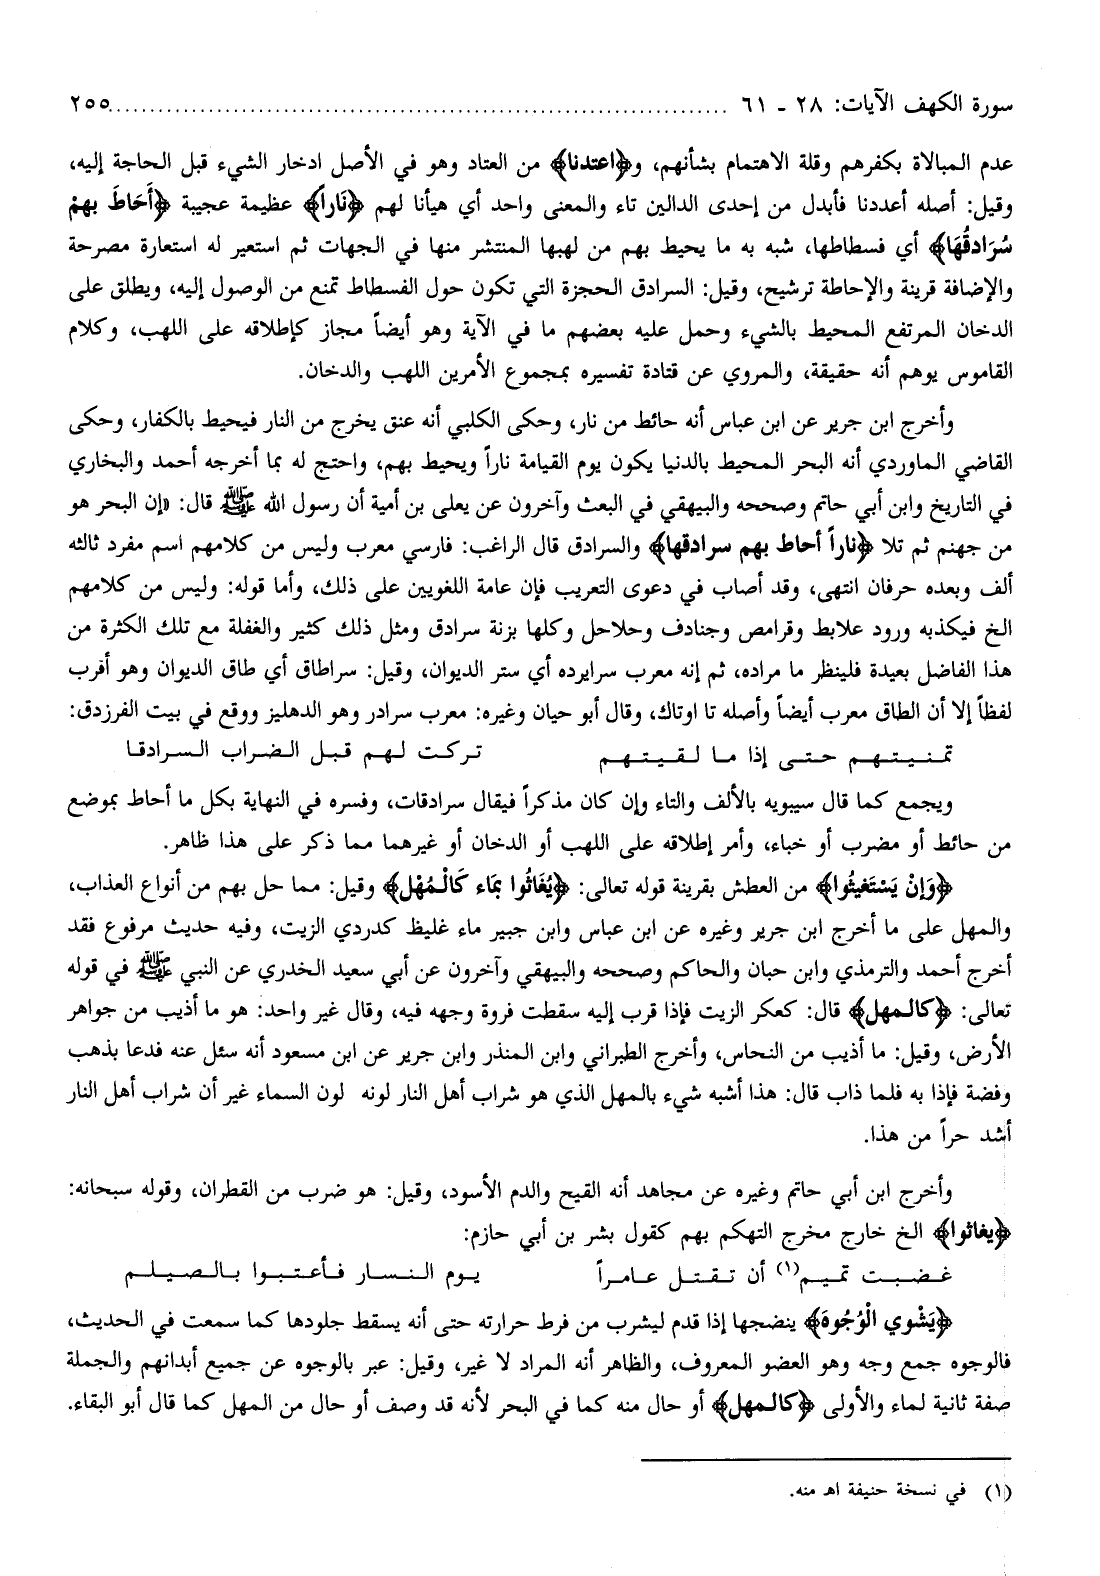 سورة الكهف الآيات: ٢٨ - ٦١ ........................................................................... ٢٥٥
عدم المبالاة بكفرهم وقلة الاهتمام بشأنهم، و﴿اعتدنا﴾ من العتاد وهو في الأصل ادخار الشيء قبل الحاجة إليه،
وقيل: أصله أعددنا فأبدل من إحدى الدالين تاء والمعنى واحد أي هيأنا لهم ﴿نَاراً﴾ عظيمة عجيبة ﴿أَحَاطَ بهِمْ
سُرَادقُهَا﴾ أي فسطاطها، شبه به ما يحيط بهم من لهبها المنتشر منها في الجهات ثم استعير له استعارة مصرحة
والإضافة قرينة والإحاطة ترشيح، وقيل: السرادق الحجزة التي تكون حول الفسطاط تمنع من الوصول إليه، ويطلق على
الدخان المرتفع المحيط بالشيء وحمل عليه بعضهم ما في الآية وهو أيضاً مجاز كإطلاقه على اللهب، وكلام
القاموس يوهم أنه حقيقة، والمروي عن قتادة تفسيره بمجموع الأمرين اللهب والدخان.
وأخرج ابن جرير عن ابن عباس أنه حائط من نار، وحكى الكلبي أنه عنق يخرج من النار فيحيط بالكفار، وحكى
القاضي الماوردي أنه البحر المحيط بالدنيا يكون يوم القيامة ناراً ويحيط بهم، واحتج له بما أخرجه أحمد والبخاري
في التاريخ وابن أبي حاتم وصححه والبيهقي في البعث وآخرون عن يعلى بن أمية أن رسول الله ﷺ قال: «إن البحر هو
من جهنم ثم تلا ﴿ناراً أحاط بهم سرادقها﴾ والسرادق قال الراغب: فارسي معرب وليس من كلامهم اسم مفرد ثالثه
ألف وبعده حرفان انتهى، وقد أصاب في دعوى التعريب فإن عامة اللغويين على ذلك، وأما قوله: وليس من كلامهم
الخ فيكذبه ورود علابط وقرامص وجنادف وحلاحل وكلها بزنة سرادق ومثل ذلك كثير والغفلة مع تلك الكثرة من
هذا الفاضل بعيدة فلينظر ما مراده، ثم إنه معرب سرايرده أي ستر الديوان، وقيل: سراطاق أي طاق الديوان وهو أقرب
لفظاً إلا أن الطاق معرب أيضاً وأصله تا اوتاك، وقال أبو حيان وغيره: معرب سرادر وهو الدهليز ووقع في بيت الفرزدق:
تمنيتهم حتى إذا ما لقيتهم تركت لهم قبل الضراب السرادقا
ويجمع كما قال سيبويه بالألف والتاء وإن كان مذكراً فيقال سرادقات، وفسره في النهاية بكل ما أحاط بموضع
من حائط أو مضرب أو خباء، وأمر إطلاقه على اللهب أو الدخان أو غيرهما مما ذكر على هذا ظاهر.
﴿وَإِنْ يَسْتَغيثُوا﴾ من العطش بقرينة قوله تعالى: ﴿يُغَاثُوا بمَاء كَالْمُهْل﴾ وقيل: مما حل بهم من أنواع العذاب،
والمهل على ما أخرج ابن جرير وغيره عن ابن عباس وابن جبير ماء غليظ كدردي الزيت، وفيه حديث مرفوع فقد
أخرج أحمد والترمذي وابن حبان والحاكم وصححه والبيهقي وآخرون عن أبي سعيد الخدري عن النبي ﷺ في قوله
تعالى: ﴿كالمهل﴾ قال: كعكر الزيت فإذا قرب إليه سقطت فروة وجهه فيه، وقال غير واحد: هو ما أذيب من جواهر
الأرض، وقيل: ما أذيب من النحاس، وأخرج الطبراني وابن المنذر وابن جرير عن ابن مسعود أنه سئل عنه فدعا بذهب
وفضة فإذا به فلما ذاب قال: هذا أشبه شيء بالمهل الذي هو شراب أهل النار لونه لون السماء غير أن شراب أهل النار
أشد حراً من هذا.
وأخرج ابن أبي حاتم وغيره عن مجاهد أنه القيح والدم الأسود، وقيل: هو ضرب من القطران، وقوله سبحانه:
﴿يغاثوا﴾ الخ خارج مخرج التهكم بهم كقول بشر بن أبي حازم:
غضبت تميم(١) أن تقتل عامراً يوم النسار فأعتبوا بالصيلم
﴿يَشْوي الْوُجُوهَ﴾ ينضجها إذا قدم ليشرب من فرط حرارته حتى أنه يسقط جلودها كما سمعت في الحديث،
فالوجوه جمع وجه وهو العضو المعروف، والظاهر أنه المراد لا غير، وقيل: عبر بالوجوه عن جميع أبدانهم والجملة
صفة ثانية لماء والأولى ﴿كالمهل﴾ أو حال منه كما في البحر لأنه قد وصف أو حال من المهل كما قال أبو البقاء.
(١) في نسخة حنيفة اهـ منه.